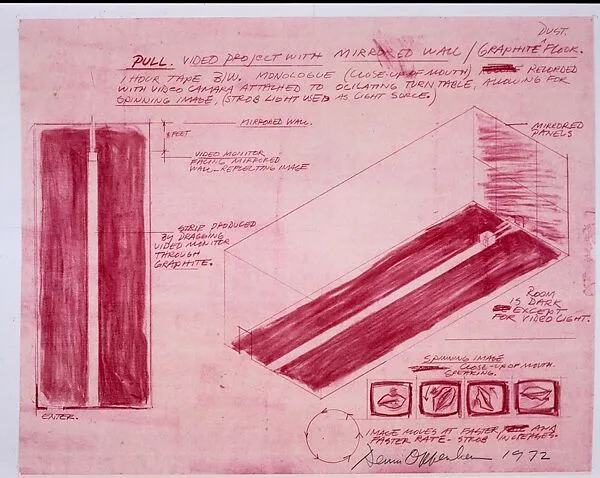 DUST.
PULL. VIDEO PROJECT WITH MIRRORED WALL / GRAPHITE FLOOR.
1 HOUR TAPE B/W. MONOLOGUE (CLOSE-UP OF MOUTH) RECORDED
WITH VIDEO CAMARA ATTACHED TO OCILATING TURNTABLE, ALLOWING FOR
SPINNING IMAGE, (STROB LIGHT USED AS LIGHT SORCE.)
MIRRORED WALL.
FEET
VIDEO MONITOR
FACING MIRRORED
WALL-REFLECTING IMAGE
MIRRORED
PANELS
STRIP PRODUCED
BY DRAGGING
VIDEO MONITOR
THROUGH
GRAPHITE.
ROOM
IS DARK
EXCEPT
FOR VIDEO LIGHT.
SPINNING IMAGE
CLOSE-UP OF MOUTH.
SPEAKING.
ENTER.
IMAGE MOVES AT FASTER AND
FASTER RATE - STROB INCREASES.
Dennis Oppenheim 1972